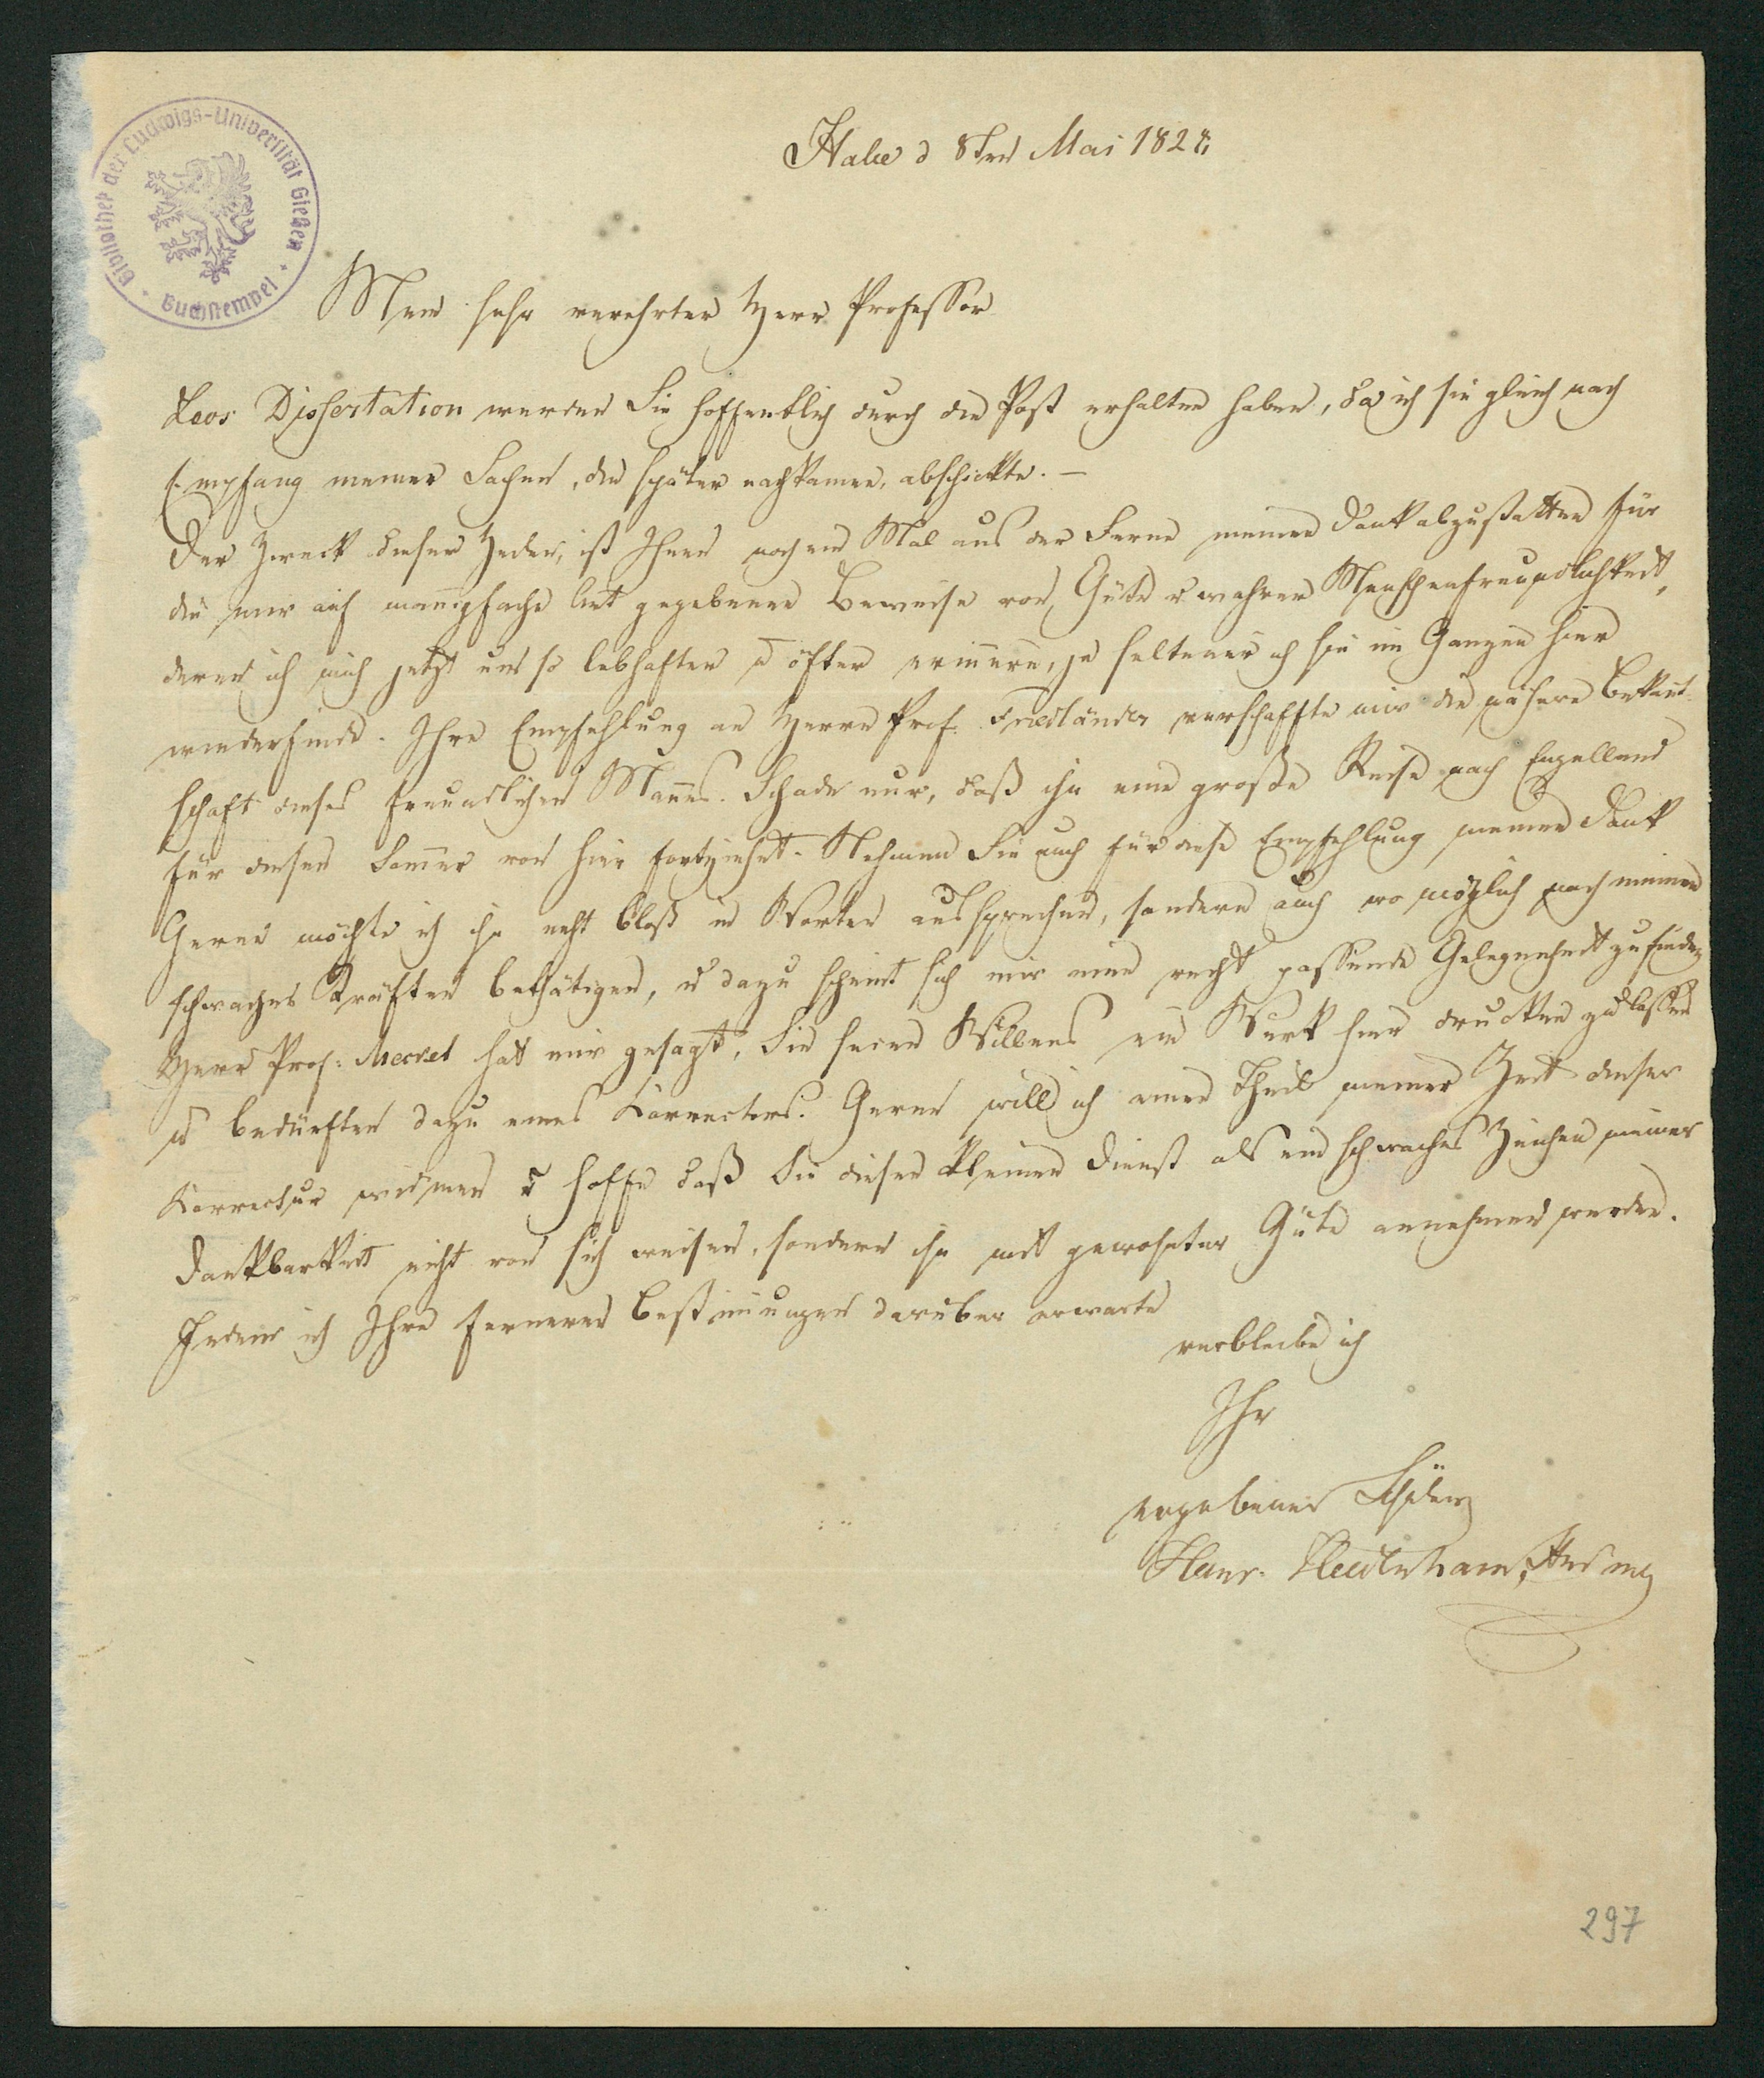 Bibliothek der Ludwigs-Universität Gießen
Buchstempel
Halle d 8ten Mai 1828.
Mein sehr verehrter Herr Professor
Leos Dissertation werden Sie hoffentlich durch die Post erhalten haben, da ich sie gleich nach
Empfang meiner Sachen, die später nachkamen, abschickte. –
Der Zweck dieser Zeilen, ist Ihnen noch ein Mal aus der Ferne meinen Dank abzustatten für
die mir auf mannigfache Art gegebenen Beweise von Güte u wahrer Menschenfreundlichkeit,
deren ich mich jetzt um so lebhafter u öfter erinnere, je seltener ich sie im Ganzen hier
wiederfinde. Ihre Empfehlung an Herrn Prof. Friedländer verschaffte mir die nähere Bekannt-
schaft dieses freundlichen Mannes. Schade nur, daß ihn eine große Reise nach Engelland
für diesen Sommer von hier fortziehet. Nehmen Sie auch für diese Empfehlung meinen Dank
Gerne möchte ich ihn nicht bloß in Worten aussprechen, sondern auch wo möglich nach meinen
schwachen Kräften bethätigen, u dazu scheint sich mir eine recht passende Gelegenheit zu finden
Herr Prof: Meckel hat mir gesagt, Sie seien Willens ein Werk hier drucken zu lassen
u bedürften dazu eines Correctors. Gerne will ich einen Theil meiner Zeit dieser
Correctur widmen u hoffe daß Sie diesen kleinen Dienst als ein schwaches Zeichen meiner
Dankbarkeit nicht von sich weisen, sondern ihn mit gewohnter Güte annehmen werden.
Indem ich Ihre ferneren Bestimmungen darüber erwarte
verbleibe ich
Ihr
ergebener Schüler
297